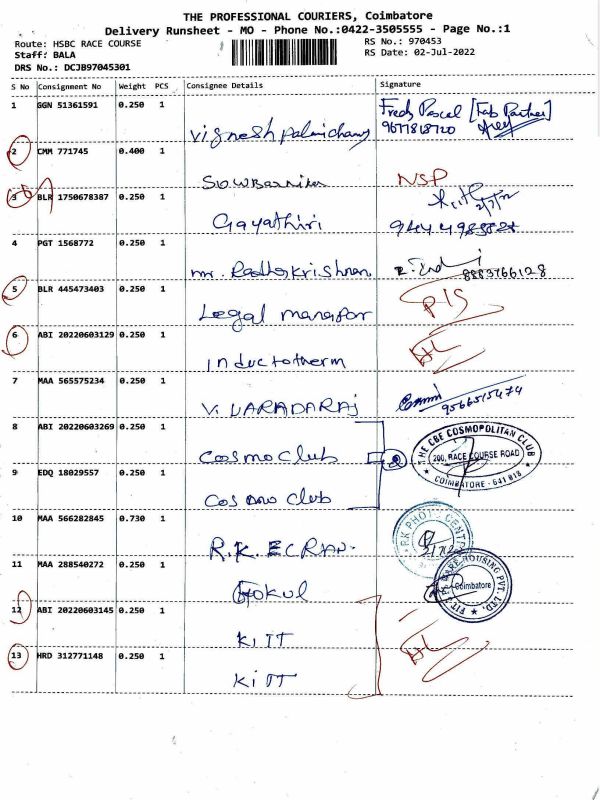 THE PROFESSIONAL COURIERS, Coimbatore
Delivery Runsheet - MO - Phone No.:0422-3505555 - Page No.:1
Route: HSBC RACE COURSE
RS No.: 970453
Staff: BALA
RS Date: 02-Jul-2022
DRS No.: DCJB97045301
S No Consignment No Weight PCS Consignee Details Signature
1 GGN 51361591 0.250 1
Vignesh Palanichamy Fredy Pascal [Fab Partner]
9677818720
2 CMM 771745 0.400 1
Sowbarnika NSP
3 BLR 1750678387 0.250 1
Gayathiri
4 PGT 1568772 0.250 1
mr. Radhakrishnan 8883766128
5 BLR 445473403 0.250 1
Legal manager P/S
6 ABI 20220603129 0.250 1
inductotherm DL
7 MAA 565575234 0.250 1
V. VARADARAJ 9566515474
8 ABI 20220603269 0.250 1
cosmo club 2
THE CBE COSMOPOLITAN CLUB
200, RACE COURSE ROAD
COIMBATORE - 641 018
9 EDQ 18029557 0.250 1
cosmo club
10 MAA 566282845 0.730 1
R.K. ECRAN.
RK PHOTO CENTRE
11 MAA 288540272 0.250 1
Gokul
HOUSING PVT. LTD.
Coimbatore
12 ABI 20220603145 0.250 1
KITT
13 HRD 312771148 0.250 1
KITT DL